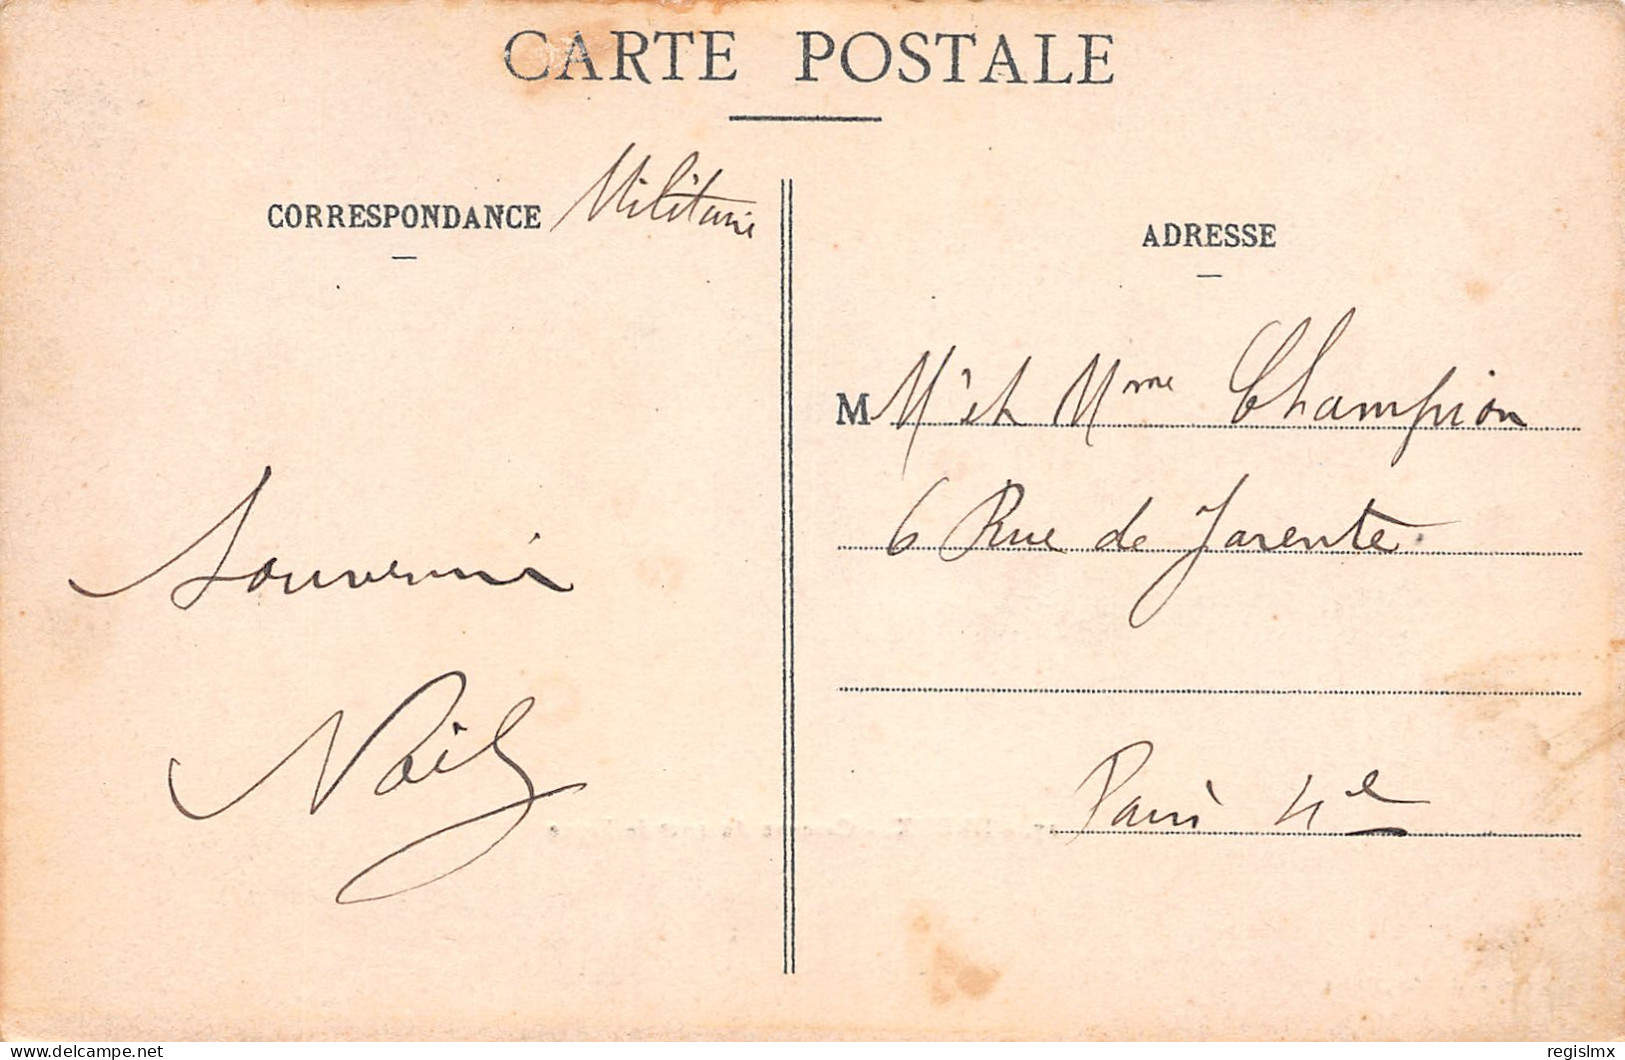 CARTE POSTALE
CORRESPONDANCE Militaire
ADRESSE
M Mr et Mme Champion
6 Rue de Jarente.
Paris 4e
Souvenir
Noël
delcampe.net
regislmx